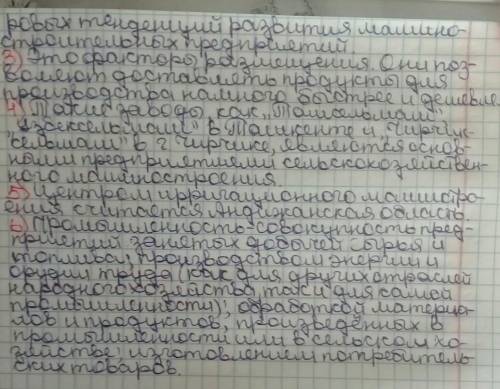 ровых тенденций развития машино-
строительных предприятий.
3) Это факторы размещения. Они поз-
воляют доставлять продукты для
производства намного быстрее и дешевле
4) Такие заводы, как "Ташсельмаш"
"Узбексельмаш" в Ташкенте и "Чирчик-
сельмаш" в г Чирчике, являются основ-
ными предприятиями сельскохозяйствен-
ного машиностроения.
5) Центром ирригационного машиностро-
ения считается Андижанская область.
6) Промышленность-совокупность пред-
приятий занятых добычей сырья и
топлива; производством энергии и
орудий труда (как для других отраслей
народного хозяйства, так и для самой
промышленности); обработкой материа-
лов и продуктов, произведённых в
промышленности или в сельском хо-
зяйстве; изготовлением потребитель-
ских товаров.